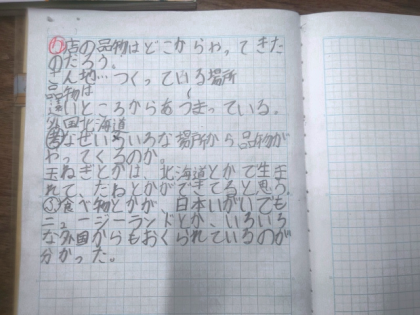 め店の品物はどこからやってきた
のだろう。
さん地…つくっている場所
品物は
遠いところからあつまっている。
外国北海道
なぜいろいろな場所から品物が
やってくるのか。
玉ねぎとかは、北海道とかで生ま
れて、たねとかができてると思う。
ま食べ物とかが、日本いがいでも
ニュージーランドとか、いろいろ
な外国からもおくられているのが
分かった。